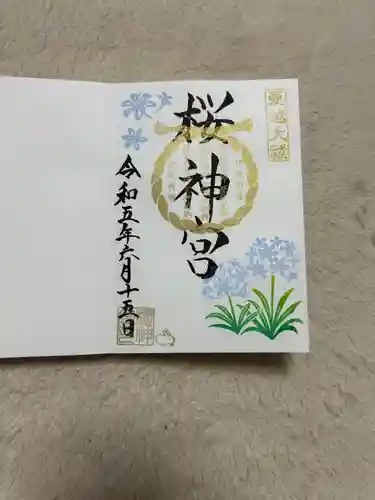 夏越大祓
桜神宮
令和五年六月十五日